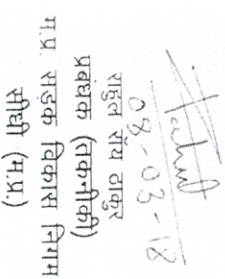 08-03-18
राहुल राय ठाकुर
प्रबंधक (तकनीकी)
म.प्र. सड़क विकास निगम
सीधी (म.प्र.)